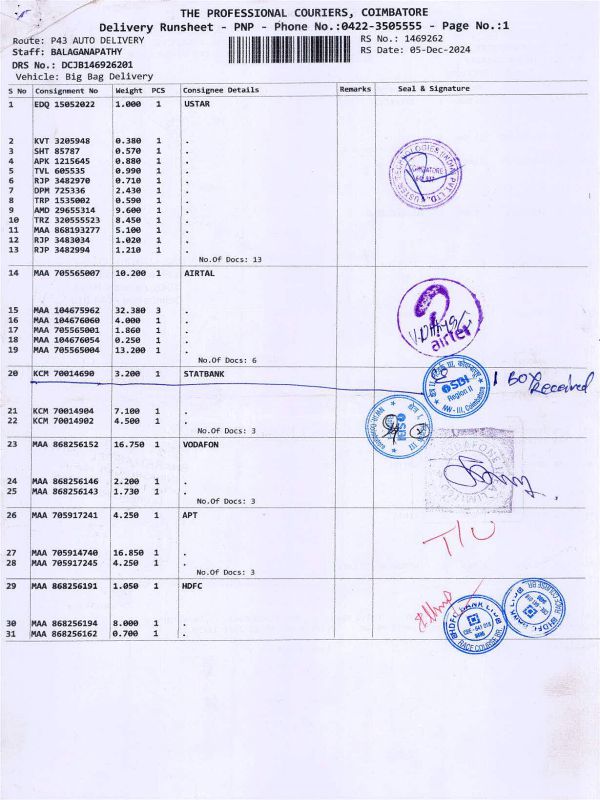 THE PROFESSIONAL COURIERS, COIMBATORE
Delivery Runsheet - PNP - Phone No.:0422-3505555 - Page No.:1
Route: P43 AUTO DELIVERY
RS No.: 1469262
Staff: BALAGANAPATHY
RS Date: 05-Dec-2024
DRS No.: DCJB146926201
Vehicle: Big Bag Delivery
S No Consignment No Weight PCS Consignee Details Remarks Seal & Signature
1 EDQ 15052022 1.000 1 USTAR
2 KVT 3205948 0.380 1 .
3 SHT 85787 0.570 1 .
4 APK 1215645 0.880 1 .
5 TVL 605535 0.990 1 .
6 RJP 3482970 0.710 1 .
7 DPM 725336 2.430 1 .
8 TRP 1535002 0.590 1 .
9 AMD 29655314 9.600 1 .
10 TRZ 320555523 8.450 1 .
11 MAA 868193277 5.100 1 .
12 RJP 3483034 1.020 1 .
13 RJP 3482994 1.210 1 .
No.Of Docs: 13
14 MAA 705565007 10.200 1 AIRTAL
15 MAA 104675962 32.380 3 .
16 MAA 104676060 4.000 1 .
17 MAA 705565001 1.860 1 .
18 MAA 104676054 0.250 1 .
19 MAA 705565004 13.200 1 .
airtel
No.Of Docs: 6
20 KCM 70014690 3.200 1 STATBANK
SBI
Region II
NW - III, Coimbatore
1 BOX Received
21 KCM 70014904 7.100 1 .
22 KCM 70014902 4.500 1 .
SBI
No.Of Docs: 3
23 MAA 868256152 16.750 1 VODAFON
24 MAA 868256146 2.200 1 .
25 MAA 868256143 1.730 1 .
No.Of Docs: 3
26 MAA 705917241 4.250 1 APT
27 MAA 705914740 16.850 1 .
28 MAA 705917245 4.250 1 .
No.Of Docs: 3
29 MAA 868256191 1.050 1 HDFC
30 MAA 868256194 8.000 1 .
31 MAA 868256162 0.700 1 .